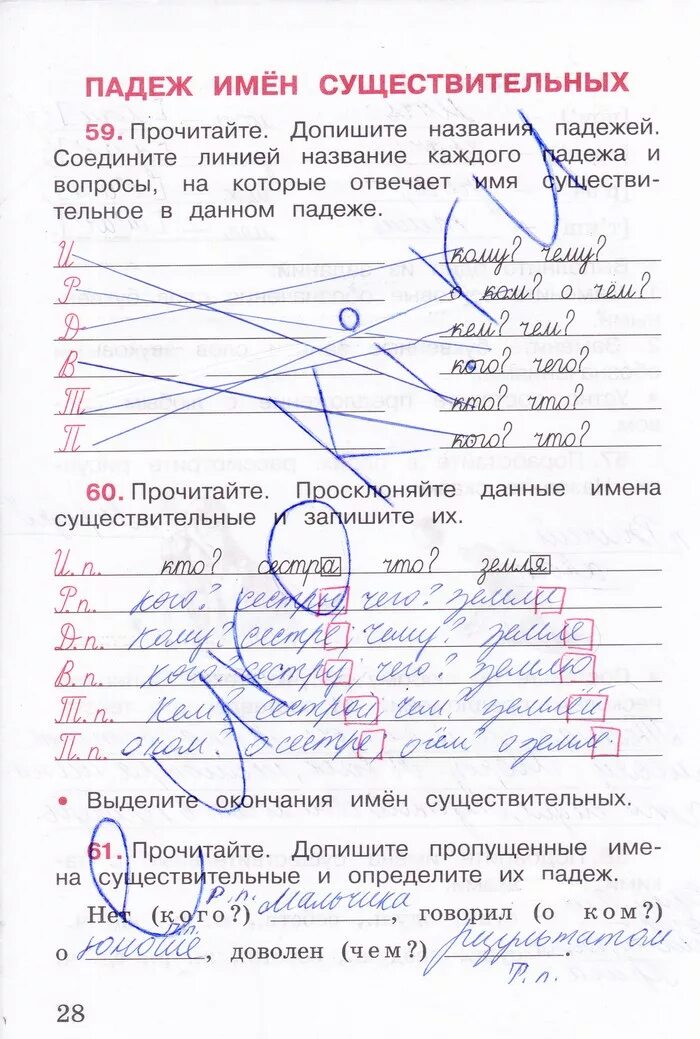 ПАДЕЖ ИМЁН СУЩЕСТВИТЕЛЬНЫХ
59. Прочитайте. Допишите названия падежей.
Соедините линией название каждого падежа и
вопросы, на которые отвечает имя существи-
тельное в данном падеже.
И кому? чему?
Р о ком? о чём?
Д кем? чем?
В кого? чего?
Т кто? что?
П кого? что?
60. Прочитайте. Просклоняйте данные имена
существительные и запишите их.
И. п. кто? сестра что? земля
Р. п. кого? сестры чего? земли
Д. п. кому? сестре; чему? земле
В. п. кого? сестру; чего? землю
Т. п. Кем? сестрой; чем? землёй
П. п. о ком? о сестре; о чём о земле.
• Выделите окончания имён существительных.
61. Прочитайте. Допишите пропущенные име-
на существительные и определите их падеж.
Р. п.
Нет (кого?) Мальчика говорил (о ком?)
П.п.
о юноше, доволен (чем?) результатом.
Т. п.
28